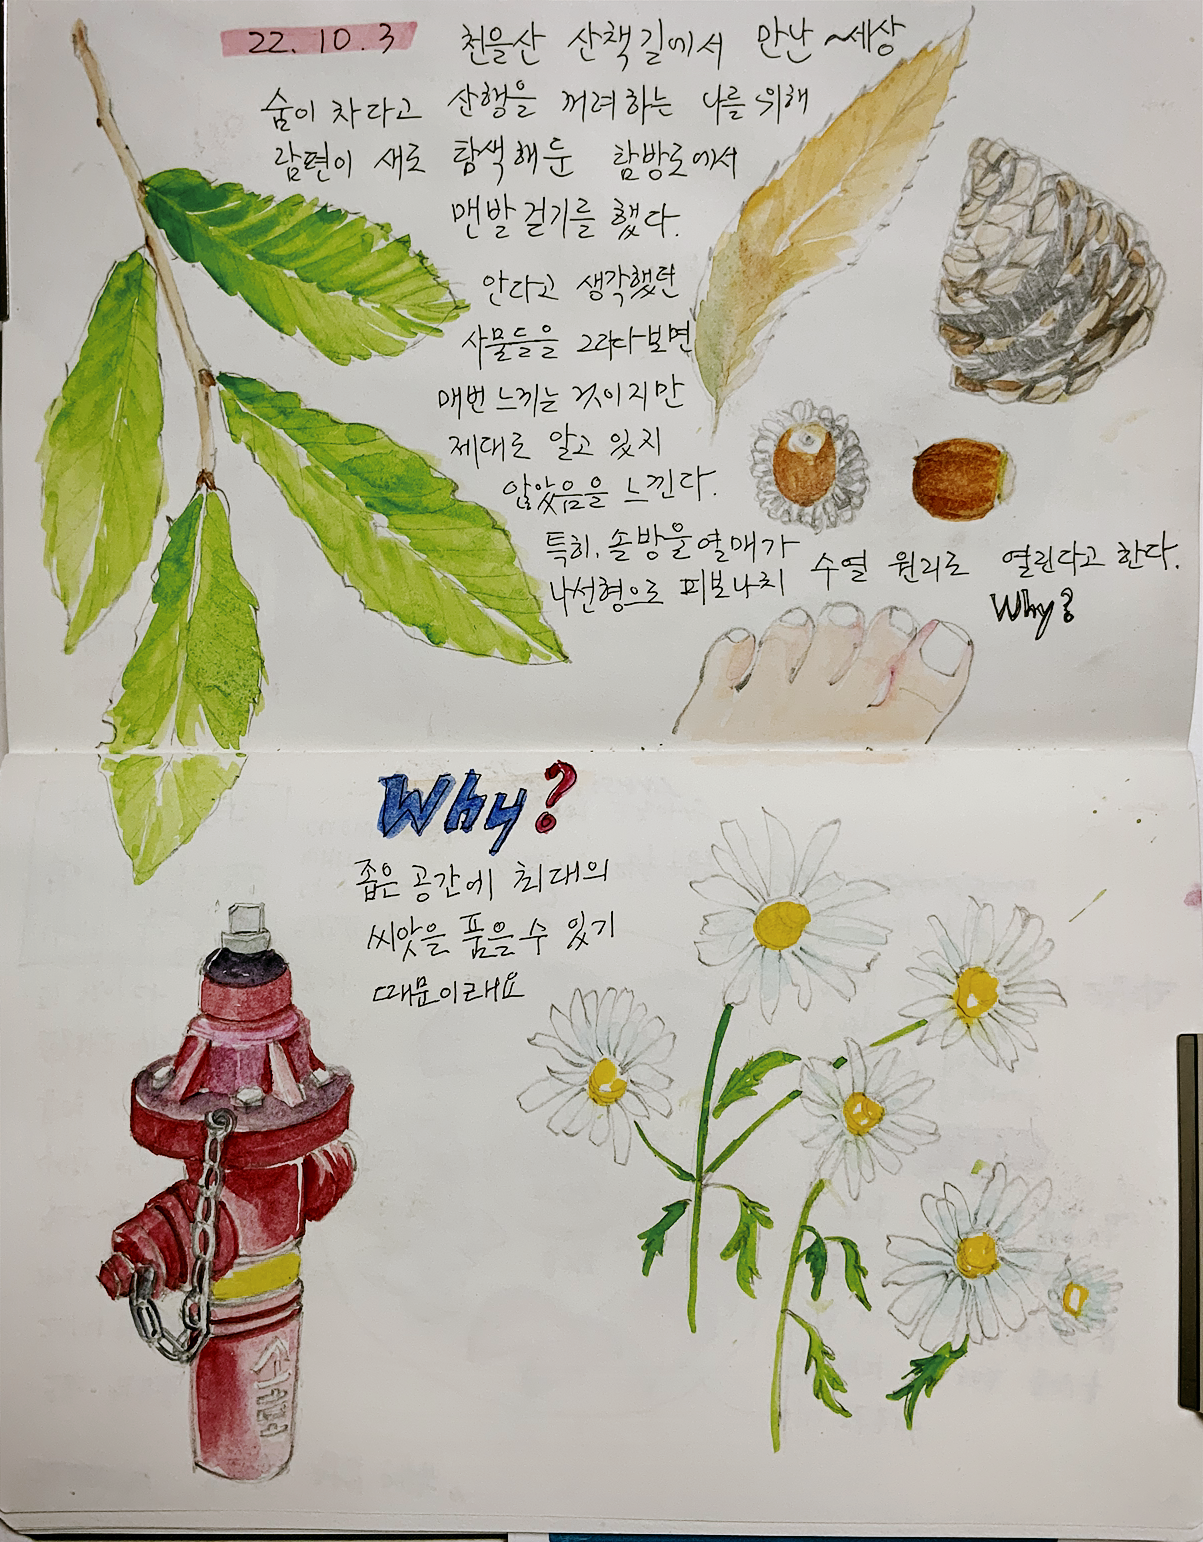 22. 10. 3 천을산 산책길에서 만난 ~세상
숨이 차다고 산행을 꺼려하는 나를 위해
남편이 새로 탐색해둔 탐방로에서
맨발걷기를 했다.
안다고 생각했던
사물들을 그리다보면
매번 느끼는 것이지만
제대로 알고 있지
않았음을 느낀다.
특히, 솔방울열매가
나선형으로 피보나치 수열 원리로 열린다고 한다.
Why?
Why?
좁은 공간에 최대의
씨앗을 품을 수 있기
때문이래요